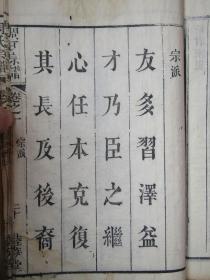 宗派
友多習澤益
才乃臣之繼
心任本克復
其長及後裔
宗派